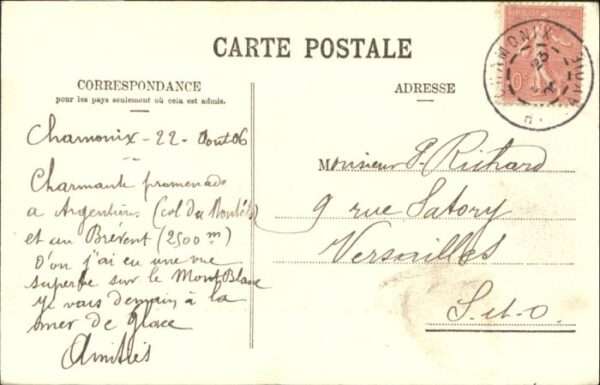 CARTE POSTALE
CORRESPONDANCE
pour les pays seulement où cela est admis.
Chamonix - 22 - Aout 06
Charmante promenade
a Argentière (col du Montets)
et au Brévent (2500 m)
D'ou j'ai eu une vue
superbe sur le Mont Blanc
je vais demain à la
mer de glace
Amitiés
ADRESSE
CHAMONIX
23
Monsieur P. Richard
9 rue Satory
Versailles
S. et. O.